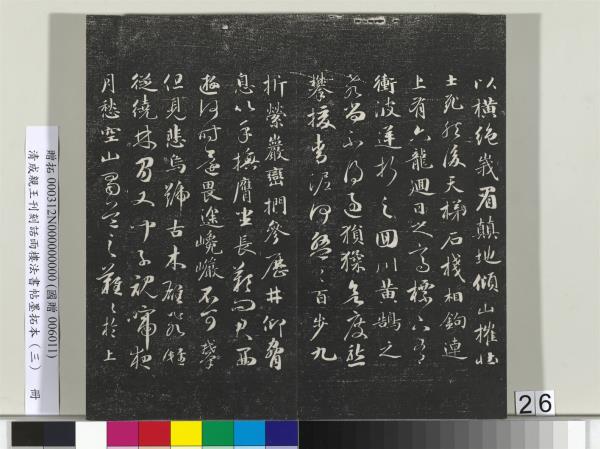 以橫絕峨眉顛地傾山摧壯
士死然後天梯石棧相鉤連
上有六龍迴日之高標下有
衝波逆折之回川黃鵠之
飛尚不得過猿猱欲度愁
攀援青泥何盤〻百步九
折縈巖巒捫參歷井仰脅
息以手撫膺坐長歎問君西
遊何時還畏途巉巖不可攀
但見悲鳥號古木雄飛雌
從繞林間又聞子規啼夜
月愁空山蜀道之難〻於上
贈拓 000312N000000000 (國贈 006011)
清成親王刊刻話雨樓法書帖墨拓本（三） 冊
26